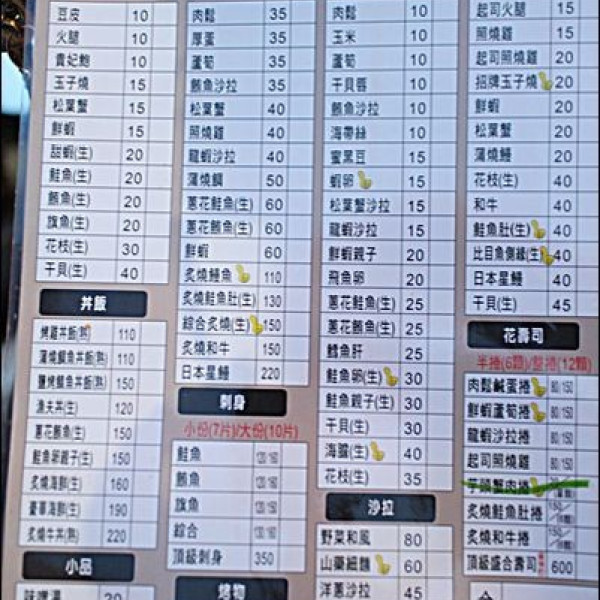 豆皮 10
火腿 10
貴妃鮑 10
玉子燒 15
松葉蟹 15
鮮蝦 15
甜蝦(生) 20
鮭魚(生) 20
鮪魚(生) 20
旗魚(生) 20
花枝(生) 30
干貝(生) 40
丼飯
烤雞丼飯(熟) 110
蒲燒鯛魚丼飯(熟) 110
鹽烤鯖魚丼飯(熟) 150
漁夫丼(生) 120
蔥花鮪魚(生) 150
鮭魚卵親子(生) 150
炙燒海鮮(生) 160
豪華海鮮(生) 190
炙燒牛丼(熟) 220
小品
味噌湯 20
肉鬆 35
厚蛋 35
蘆筍 35
鮪魚沙拉 35
松葉蟹 40
照燒雞 40
龍蝦沙拉 40
蒲燒鯛 50
蔥花鮭魚(生) 60
蔥花鮪魚(生) 60
鮮蝦 60
炙燒鰻魚 110
炙燒鮭魚肚(生) 130
綜合炙燒(生) 150
炙燒和牛 150
日本星鰻 220
刺身
小份(7片)/大份(10片)
鮭魚 120/160
鮪魚 120/160
旗魚 120/160
綜合 120/160
頂級刺身 350
烤物
肉鬆 10
玉米 10
蘆筍 10
干貝唇 10
鮪魚沙拉 10
海帶絲 10
蜜黑豆 15
蝦卵 15
松葉蟹沙拉 15
龍蝦沙拉 15
鮮蝦親子 20
飛魚卵 20
蔥花鮭魚(生) 25
蔥花鮪魚(生) 25
鱈魚肝 25
鮭魚卵(生) 30
鮭魚親子(生) 30
干貝(生) 30
海膽(生) 40
花枝(生) 35
沙拉
野菜和風 80
山藥細麵 60
洋蔥沙拉 45
起司火腿 15
照燒雞 15
起司照燒雞 20
招牌玉子燒 20
鮮蝦 20
松葉蟹 20
蒲燒鰻 20
花枝(生) 40
和牛 40
鮭魚肚(生) 40
比目魚側緣(生) 40
日本星鰻 40
干貝(生) 45
花壽司
半捲(6顆)/整捲(12顆)
肉鬆鹹蛋捲 80/150
鮮蝦蘆筍捲 80/150
龍蝦沙拉捲 80/150
起司照燒雞 80/150
芋頭蟹肉捲
炙燒鮭魚肚捲 150/
炙燒和牛捲 150/
頂級盛合壽司 600